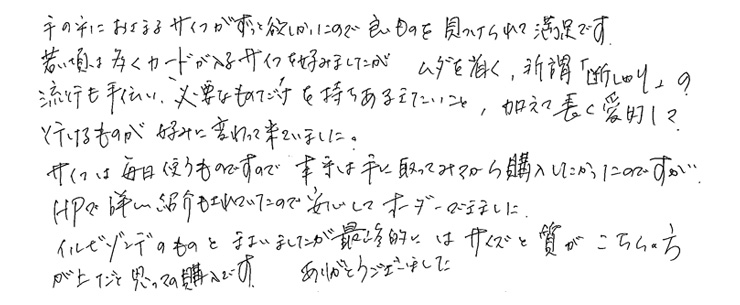 手の平におさまるサイフがずっと欲しかったので良いものを見つけられて満足です。
若い頃は多くカードが入るサイフを好みましたが ムダを省く、所謂「断しゃり」の
流行も手伝い、必要なものだけを持ちあるきたいこと、加えて長く愛用して
いけるものが好みに変わって来ていました。
サイフは毎日使うものですので本当は手に取ってみてから購入したかったのですが、
HPで詳しい紹介もされていたので安心してオーダーできました。
イルビゾンテのものとまよいましたが最終的にはサイズと質がこちらの方
が上だと思っての購入です。 ありがとうございました